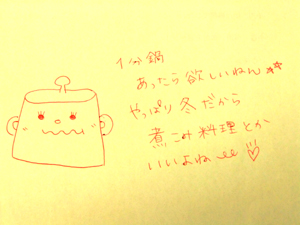 1分鍋
あったら欲しいねん☆☆
やっぱり冬だから
煮こみ料理とか
いいよね〜♡